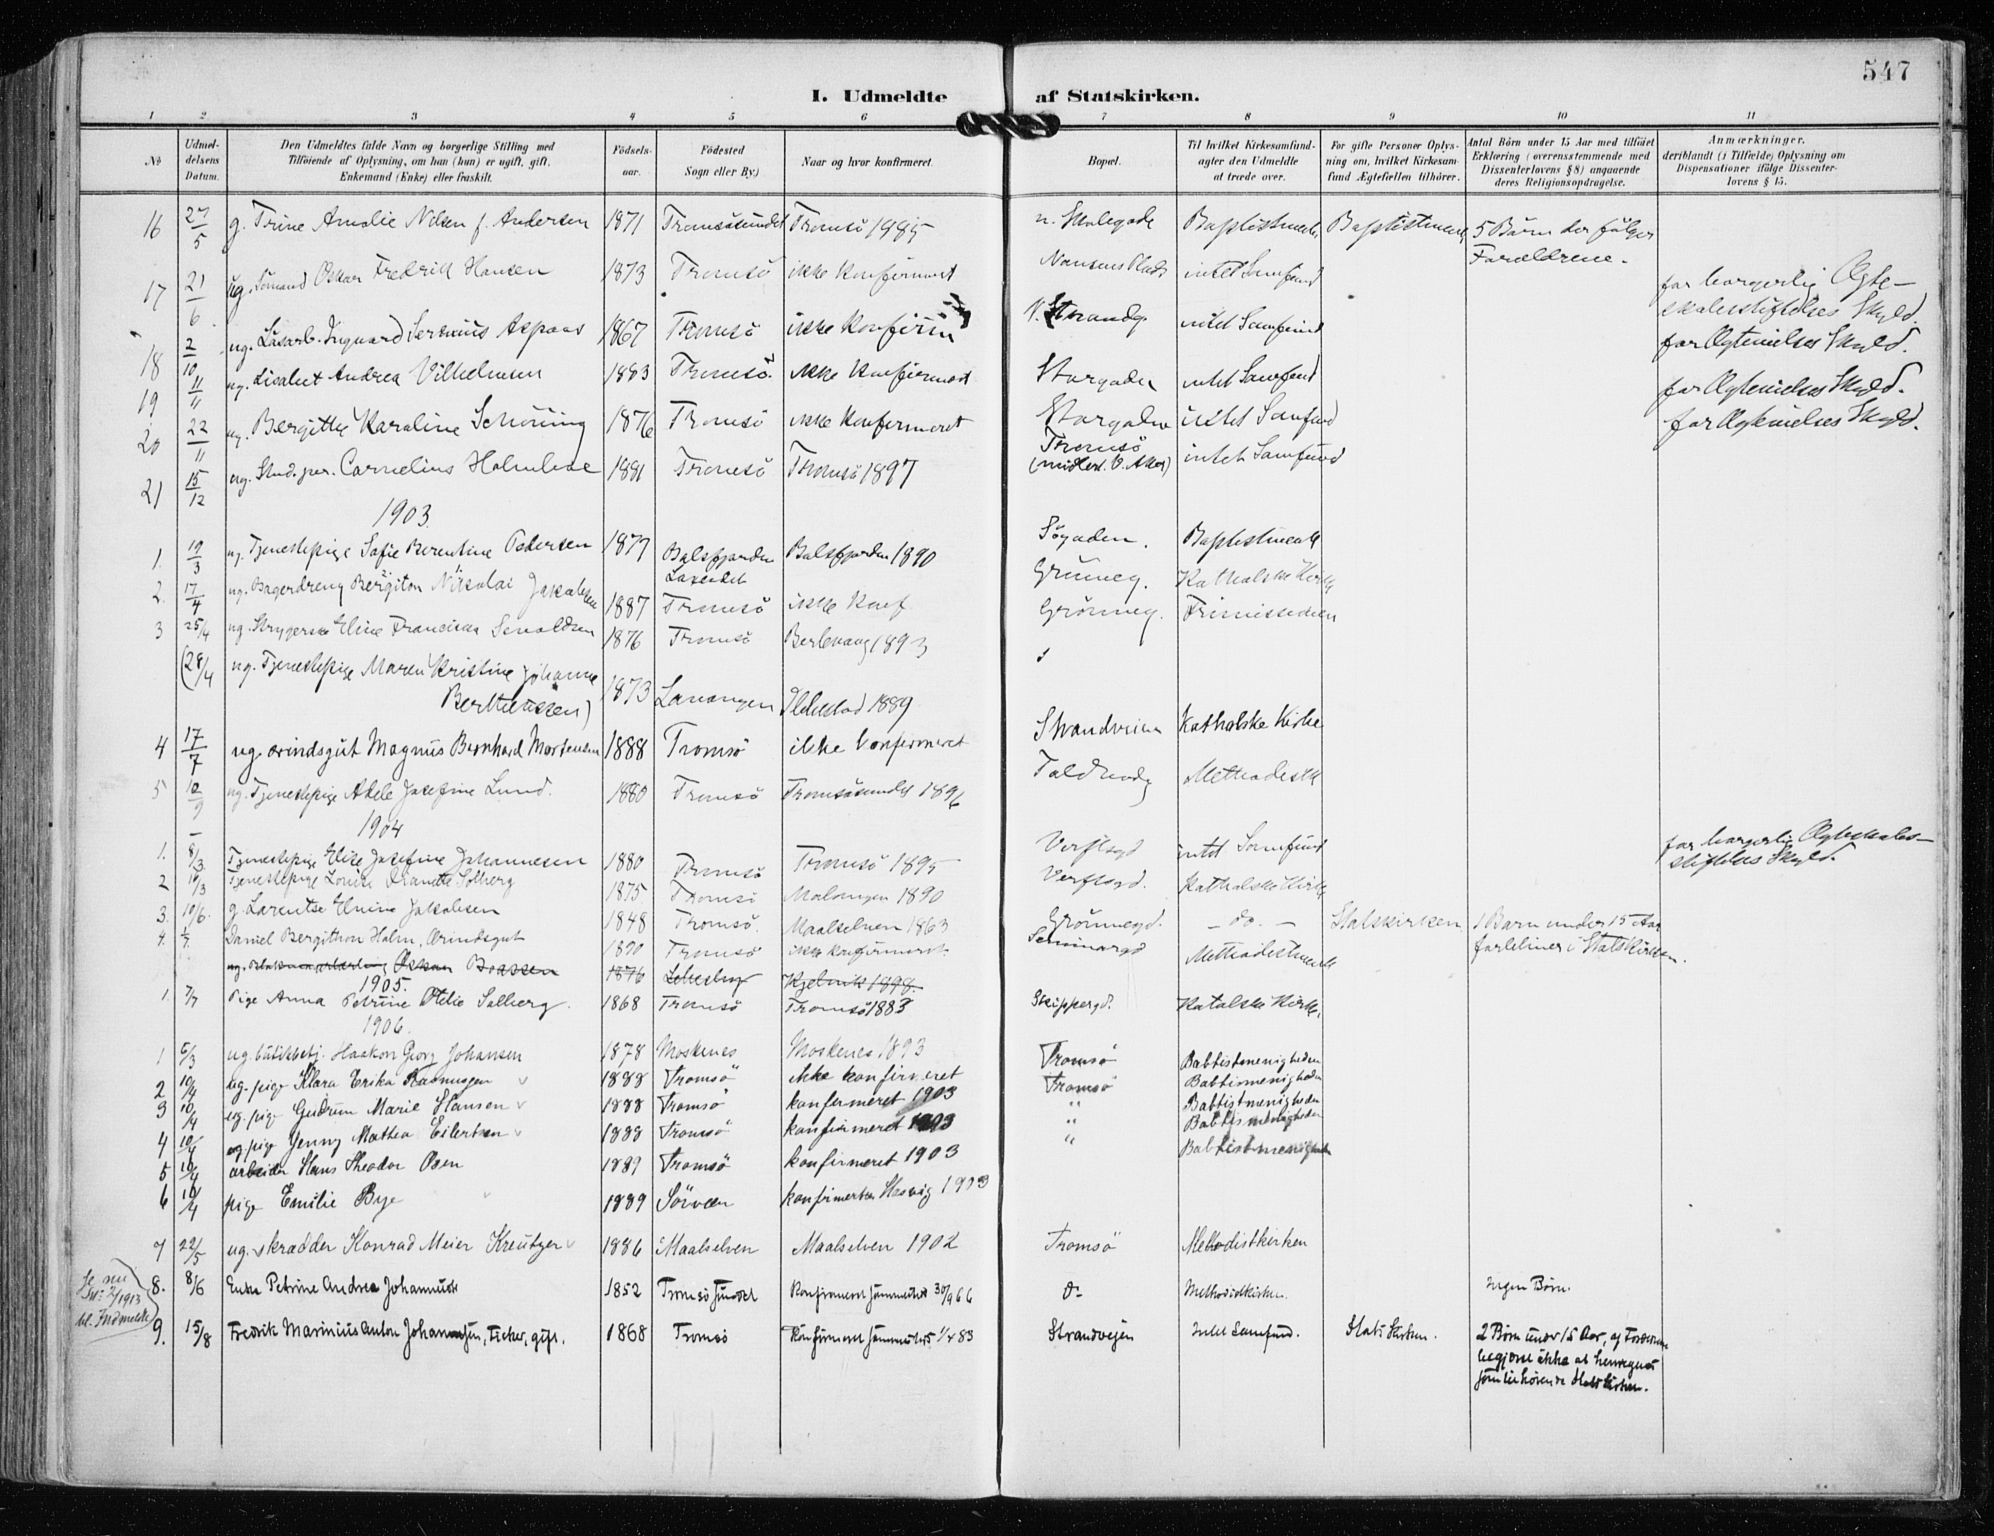 547
I. Udmeldte af Statskirken.
1 2 3 4 5 6 7 8 9 10 11
No
Udmeldelsens Datum.
Den Udmeldtes fulde Navn og borgerlige Stilling med Tilføiende af Oplysning, om han (hun) er ugift, gift, Enkemand (Enke) eller fraskilt.
Fødselsaar.
Fødested Sogn eller By.)
Naar og hvor konfirmeret.
Bopæl.
Til hvilket Kirkesamfund agter den Udmeldte at træde over.
For gifte Personer Oplysning om, hvilket Kirkesamfund Ægtefællen tilhører.
Antal Børn under 15 Aar med tilføiet Erklæring (overensstemmende med Dissenterlovens § 8) angaaende deres Religionsopdragelse.
Anmærkninger, deriblandt (i Tilfælde) Oplysning om Dispensationer ifølge Dissenterlovens § 15.
16 27/5 g. Trine Amalie Nilsen f. Andersen 1871 Tromsøsundet Tromsø 1885 n. Skolegade Baptistmenh Baptistmenh 5 Børn der følger Forældrene.
17 21/6 ug. Sømand Oskar Fredrik Hansen 1873 Tromsø ikke konfirmeret Nansens Plads intet Samfund for borgerlig Ægteskabsstiftelses Skyld.
18 2/10 ug. Løsarb. Ingvard Aspaas 1867 Tromsø ikke konfirm N. Strandg. intet Samfund for Ægtevielses Skyld.
19 11/11 ug. Lisabet Andrea Vilhelmsen 1883 Tromsø ikke konfirmeret Storgaden intet Samfund for Ægtevielses Skyld.
20 22/11 ug. Bergitte Karoline Schöning 1876 Tromsø ikke konfirmeret Storgaden intet Samfund for Ægtevielses Skyld.
21 15/12 ug. Stud. jur. Cornelius Holmboe 1881 Tromsø Tromsø 1897 Tromsø (midlert. V. Aker) intet Samfund
1903.
1. 19/3 ug. Tjenestepige Sofie Berentine Pedersen 1877 Balsfjorden Balsfjorden 1890 Søgaden. Baptistmenh
2. 17/4 ug. Bagerdreng Bergiton Nikolai Jakobsen 1887 Tromsø ikke konf Grönneg. Katholske Kirke
3 25/4 ug. Strygerske Eline Francisca 1876 Tromsø Berlevaag 1893 Grönneg. Frimissionen
(28/4 ug. Tjenestepige Maren Kristine Johanne Bertheussen) 1873 Lavangen Ibbestad 1889
4 17/7 ug. ærindsgut Magnus Bernhard Mortensen 1888 Tromsø ikke konfirmeret Strandveien Katholske Kirke
5 10/9 ug. Tjenestepige Adele Josefine Lund. 1880 Tromsø Tromsøsundet 1896 Toldbodg Methodisth
1904
1. 8/3 Tjenestepige Elise Josefine Johannesen 1880 Tromsø Tromsø 1895 Verftsgd intet Samfund for borgerlig Ægteskabsstiftelses Skyld.
2 10/3 Tjenestepige Lovise Solberg 1875 Tromsø Malangen 1890 Verftsgd. Katholske Kirke
3. 10/6. g. Larentse Elnine Jakobsen 1848 Tromsø. Maalselven 1863 Grönnegd. - do. - Statskirken 1 Barn under 15 Aar forbliver i Statskirken.
4. Daniel Bergithon Holm, Ærindsgut 1890 Tromsø ikke konfirmeret. Seminargd Methodistmenh
ug. Oskar Bossen 1876 Lebesby Kjelvik 1898.
1905.
1. 7/7 Pige Anna Petrine Otelie Solberg. 1868 Tromsø Tromsø 1883 Skippergd. Katolske Kirke.
1906.
1 6/3 ug. butikbetj. Haakon Georg Johansen 1878 Moskenes Moskenes 1893 Tromsø Babtistmenigheden
2 10/4 ug. pige Klara Erika Rasmussen v 1888 Tromsø ikke konfirmeret Tromsø Babtismenigheden
3 10/4 ug. pige Gudrun Marie Hansen v 1888 Tromsø konfirmeret 1903 " Babtistmenigheden
4 10/4 ug. pige Jenny Mathea Eilertsen v 1888 Tromsø konfirmeret 1903 " Babtistmenigheden
5 10/4 arbeider Hans Theodor Olsen 1889 Tromsø konfirmeret 1903 " Babtistmenigheden
6 10/4 pige Emilie Bye 1889 Sørvær konfirmertes Hasvig 1903
7 22/5 ug. skrædder Konrad Meier Kreutzer v 1886 Maalselven Maalselven 1902 Tromsø Methodistkirken
Se nu 1913 bl. Indmeldte
8. 8/6 Enke Petrine Andrea Johannesen 1852 Tromsø Sundet Konfirmeret sammesteds 30/9 66 do Methodistkirken. Ingen Børn.
9. 15/8 Fredrik Marinius Anton Johannesen, Fisker, gift. 1868 Tromsø Konfirmeret sammesteds 1/4 83 Strandvejen Intet Samfund. Statskirken. 2 Børn under 15 Aar, og Forældrene begjærer ikke at som tilhørende Statskirken.